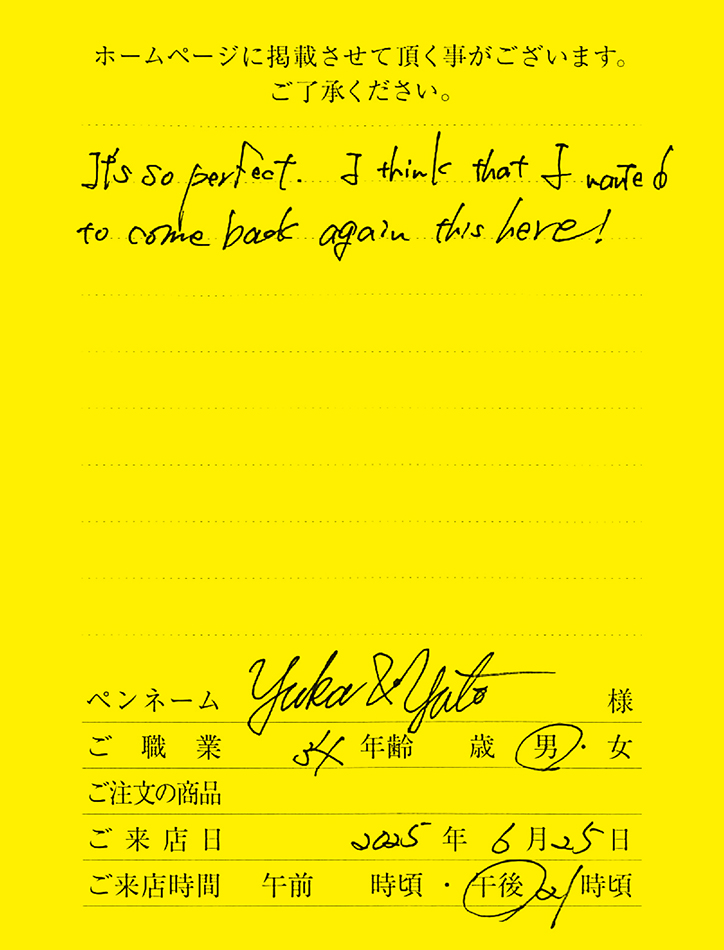 ホームページに掲載させて頂く事がございます。
ご了承ください。
It's so perfect. I think that I wanted
to come back again this here!
ペンネーム Yuka & Yuto 様
ご職業 34 年齢 歳 男・女
ご注文の商品
ご来店日 2025 年 6 月 25 日
ご来店時間 午前 時頃・午後 21 時頃